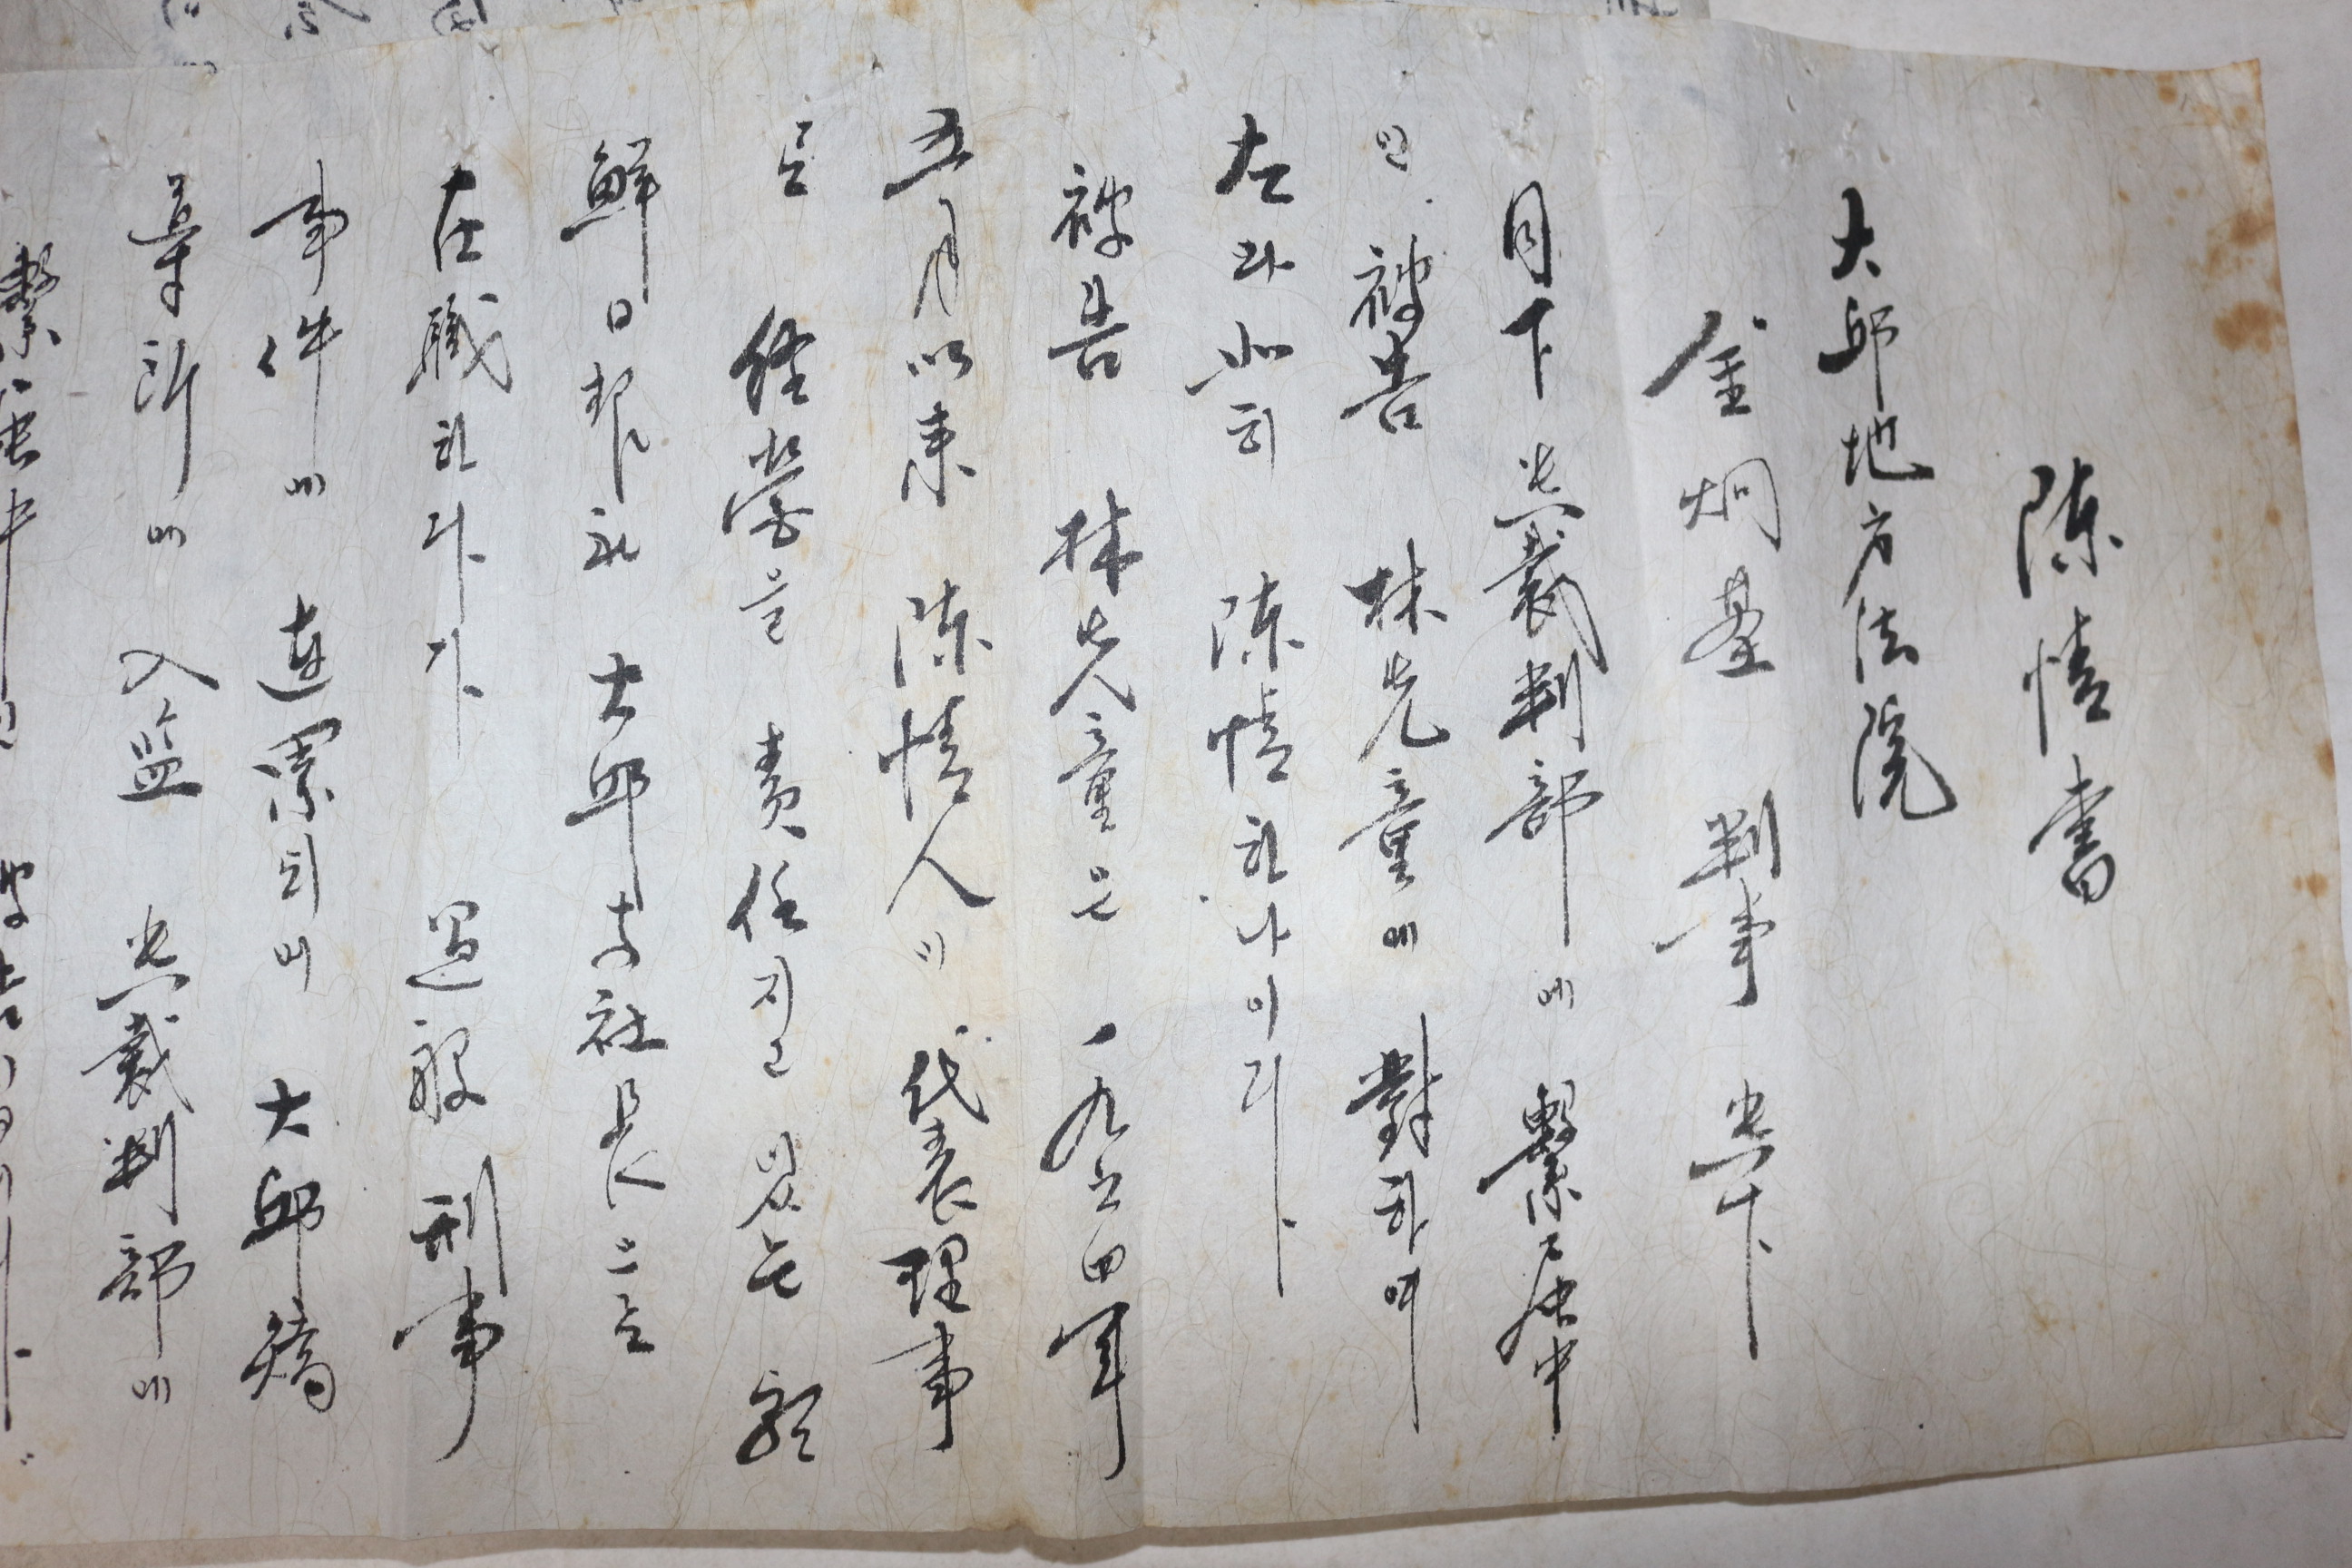 陳情書
大邱地方法院
金炯基 判事 貴下
目下 貴裁判部에 繫屬中
인 被告 林先童에 對하여
左와 如히 陳情하나이다
被告 林先童은 一九五四年
五月以來 陳情人이 代表理事
로 經營을 責任지고 있는 朝
鮮日報社 大邱支社長으로
在職하다가 過般 刑事
事件에 連累되어 大邱矯
導所에 入監 貴裁判部에